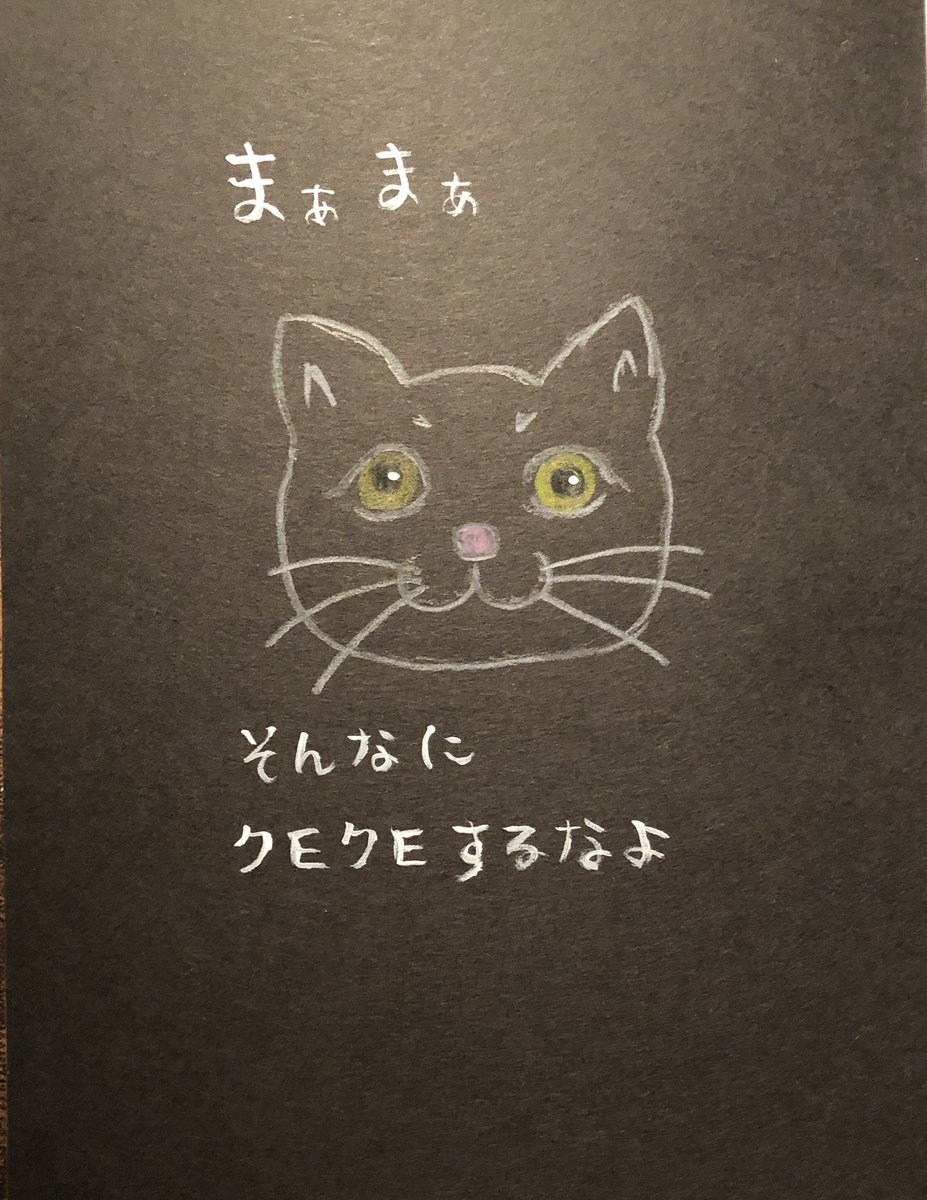 まぁまぁ
そんなに
クヨクヨするなよ